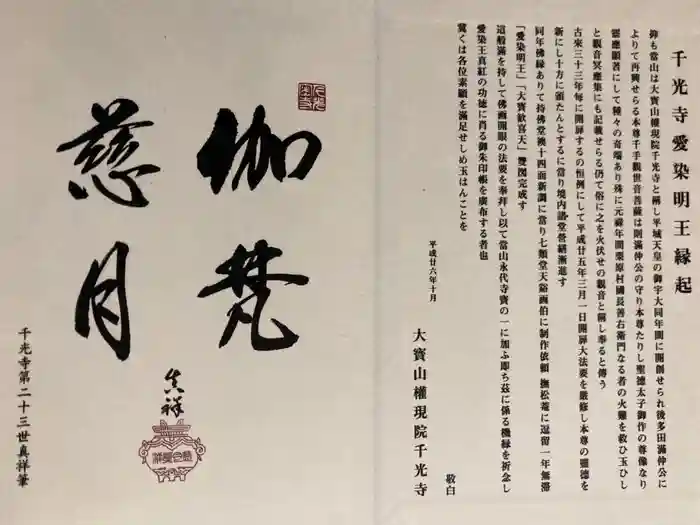 千光寺愛染明王縁起
抑も當山は大寶山權現院千光寺と稱し平城天皇の御宇大同年間に開創せられ後多田滿仲公に
よりて再興せらる本尊千手觀世音菩薩は則滿仲公の守り本尊たりし聖德太子御作の尊像なり
靈應顯著にして種々の奇端あり殊に元祿年間栗原村國長善右衛門なる者の火難を救ひ玉ひし
と觀音冥應集にも記載せらる仍て俗に之を火伏せの觀音と稱し奉ると傳う
古來三十三年每に開扉するの恒例にして平成廿五年三月一日開扉大法要を嚴修し本尊の靈德を
新にし十方に頒たんとするに當り境内諸堂營繕漸進す
同年佛緣ありて持佛堂襖十四面新調に當り七類堂天谿画伯に制作依頼 撫松菴に逗留一年無滞
「愛染明王」「大寶歡喜天」雙圖完成す
這般滿を持して佛画開眼の法要を奉拜し以て當山永代寺寶の一に加ふ即ち茲に係る機緣を祈念し
愛染王真紅の功德に肖る御朱印帳を廣布する者也
冀くは各位素願を滿足せしめ玉はんことを
平成廿六年十月
大寶山權現院千光寺
敬白
伽梵
慈月
真祥
千光寺第二十三世真祥筆